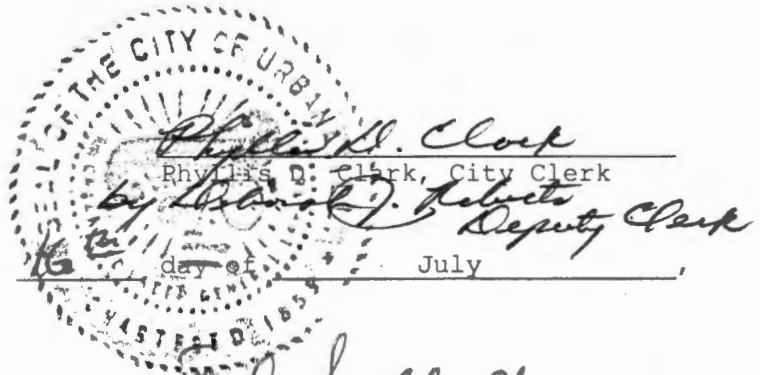 SEAL OF THE CITY OF URBANA
Phyllis D. Clark
Phyllis D. Clark, City Clerk
by Deborah J. Roberts
Deputy Clerk
16th day of July,
CHARTERED 185